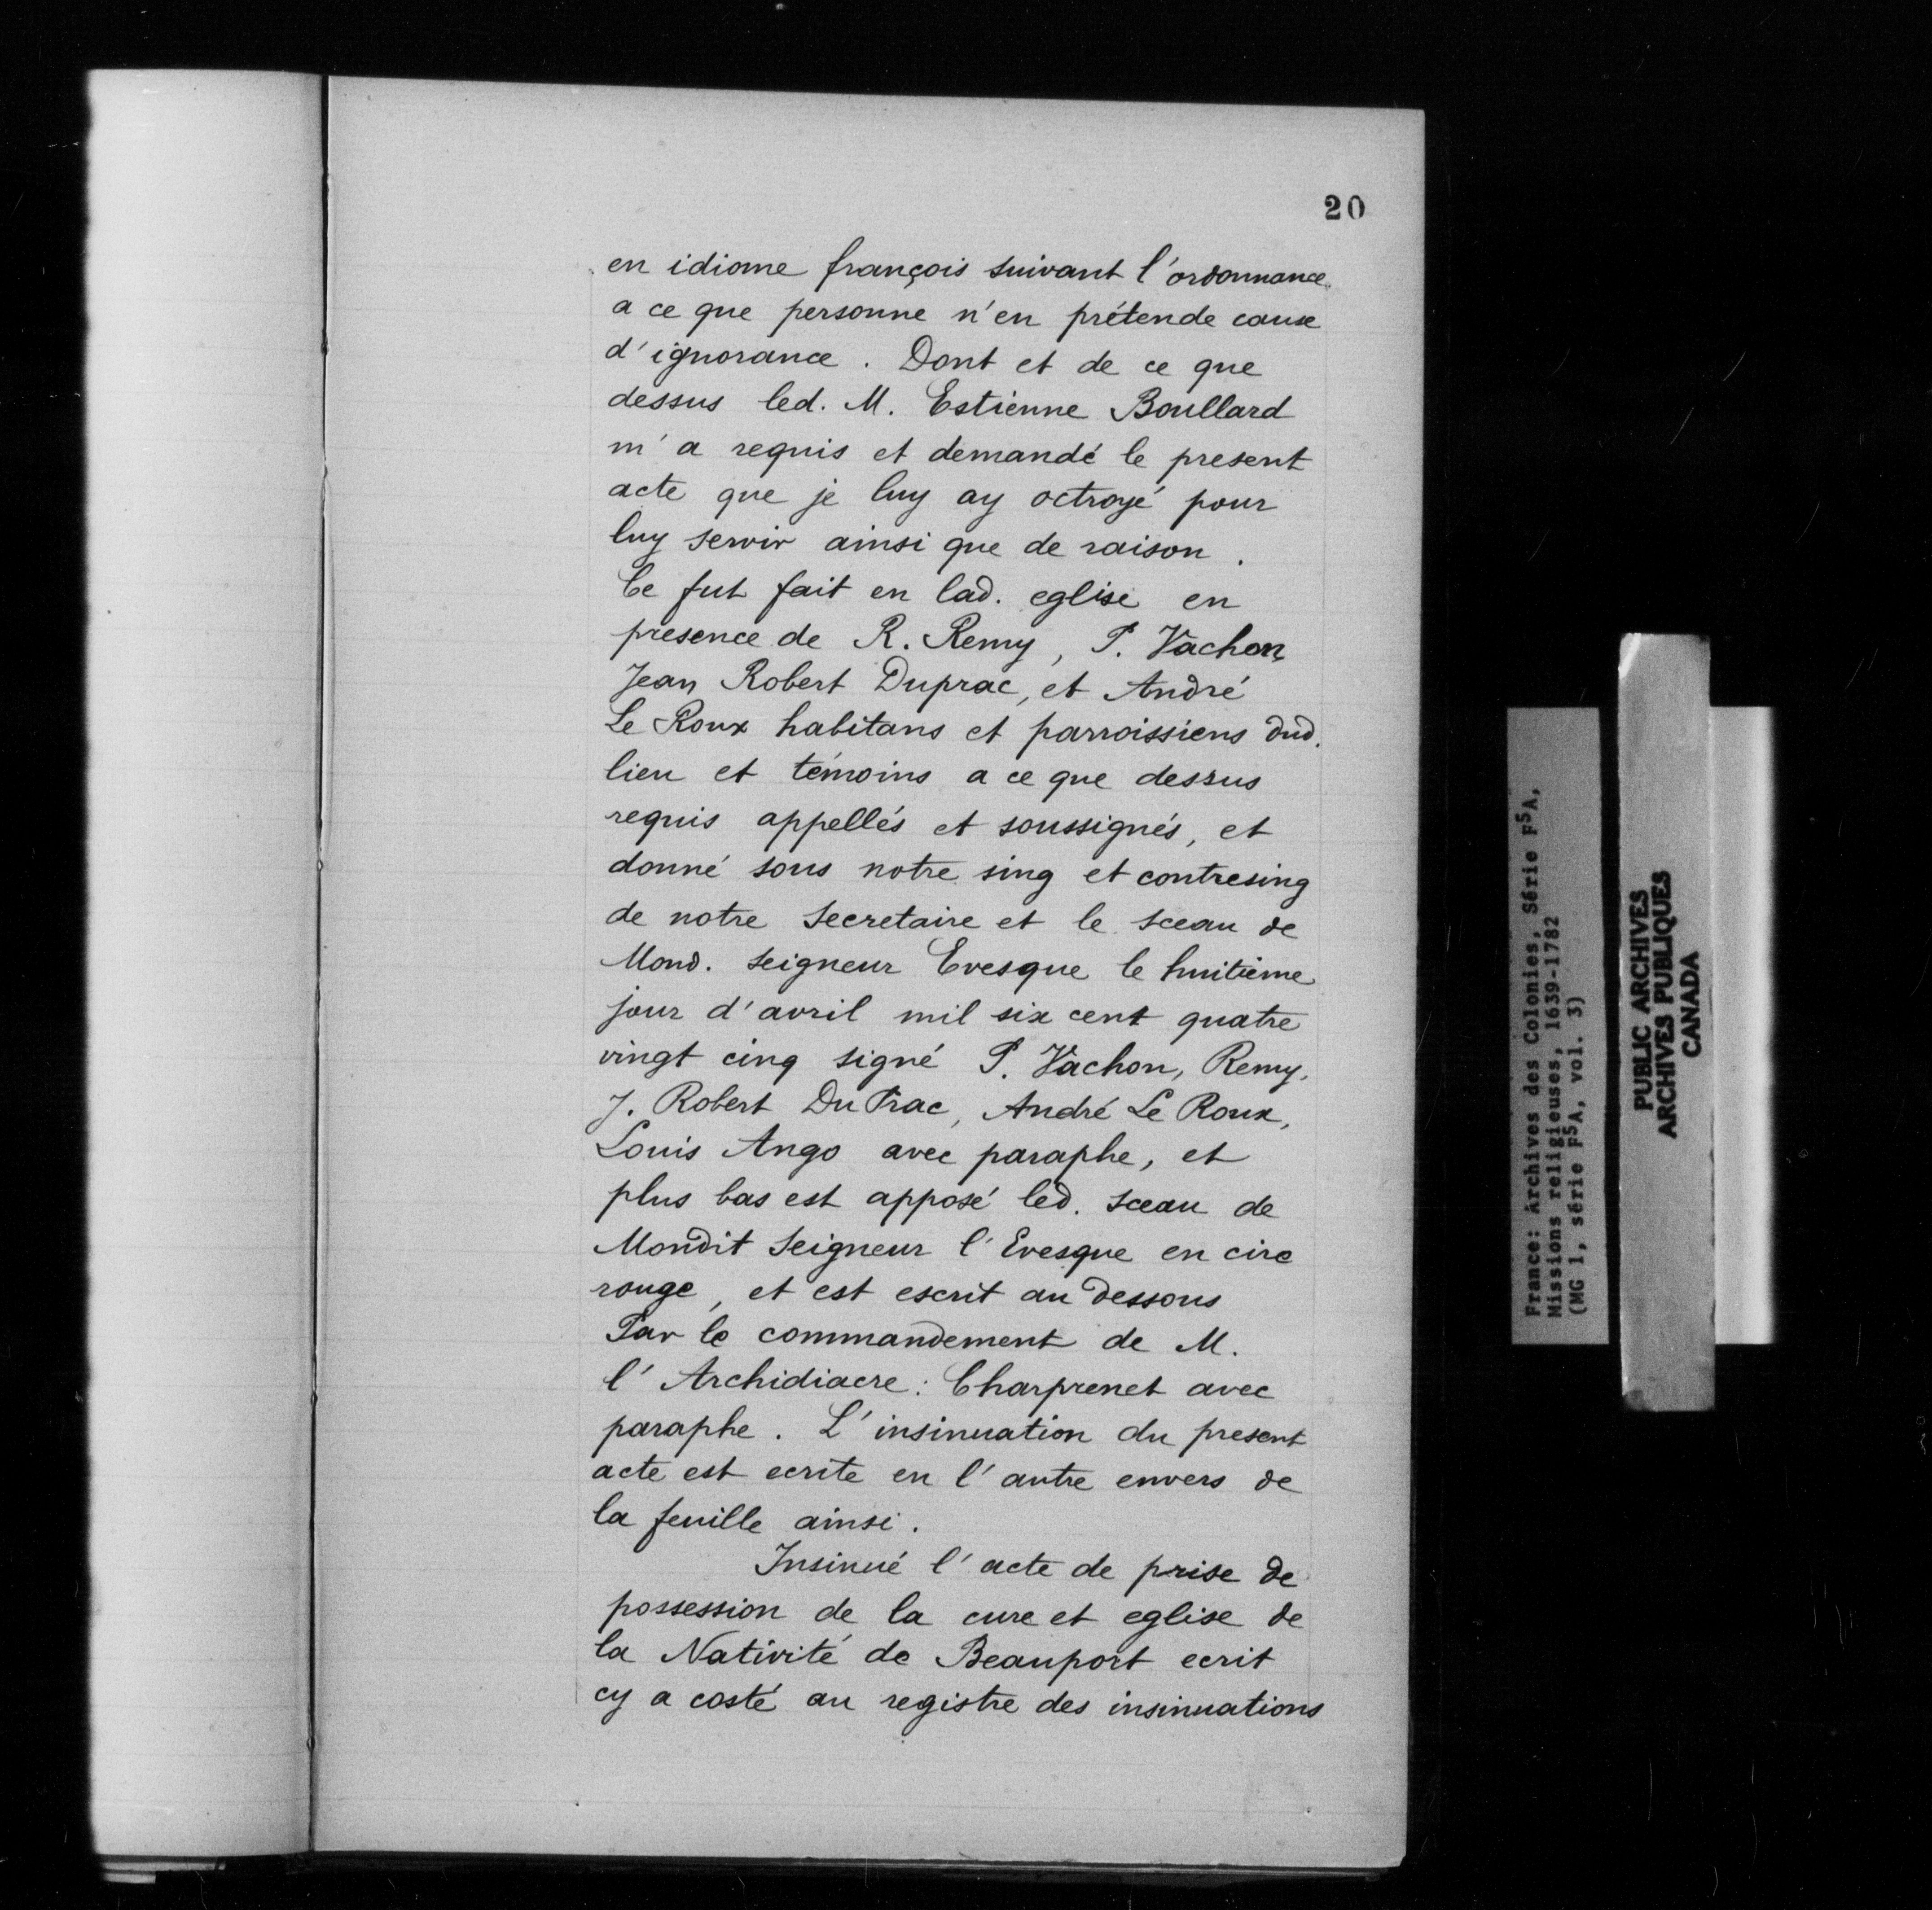 20
en idiome françois suivant l'ordonnance
a ce que personne n'en prétende cause
d'ignorance. Dont et de ce que
dessus led. M. Estienne Boullard
m'a requis et demandé le present
acte que je luy ay octroyé pour
luy servir ainsi que de raison.
Ce fut fait en lad. eglise en
presence de R. Remy, P. Vachon,
Jean Robert Duprac, et André
Le Roux habitans et parroissiens dud.
lieu et témoins a ce que dessus
requis appellés et soussignés, et
donné sous notre sing et contresing
de notre Secretaire et le sceau de
Mond. Seigneur Evesque le huitième
jour d'avril mil six cent quatre
vingt cinq signé P. Vachon, Remy,
J. Robert DuPrac, André Le Roux,
Louis Ango avec paraphe, et
plus bas est apposé led. sceau de
Mondit Seigneur l'Evesque en cire
rouge, et est escrit au dessous
Par le commandement de M.
l'Archidiacre: Charprenet avec
paraphe. L'insinuation du present
acte est ecrite en l'autre envers de
la feuille ainsi.
Insinué l'acte de prise de
possession de la cure et eglise de
la Nativité de Beauport ecrit
cy a costé au registre des insinuations
France: Archives des Colonies, Série F5A,
Missions religieuses, 1639-1782
(MG 1, série F5A, vol. 3)
PUBLIC ARCHIVES
ARCHIVES PUBLIQUES
CANADA